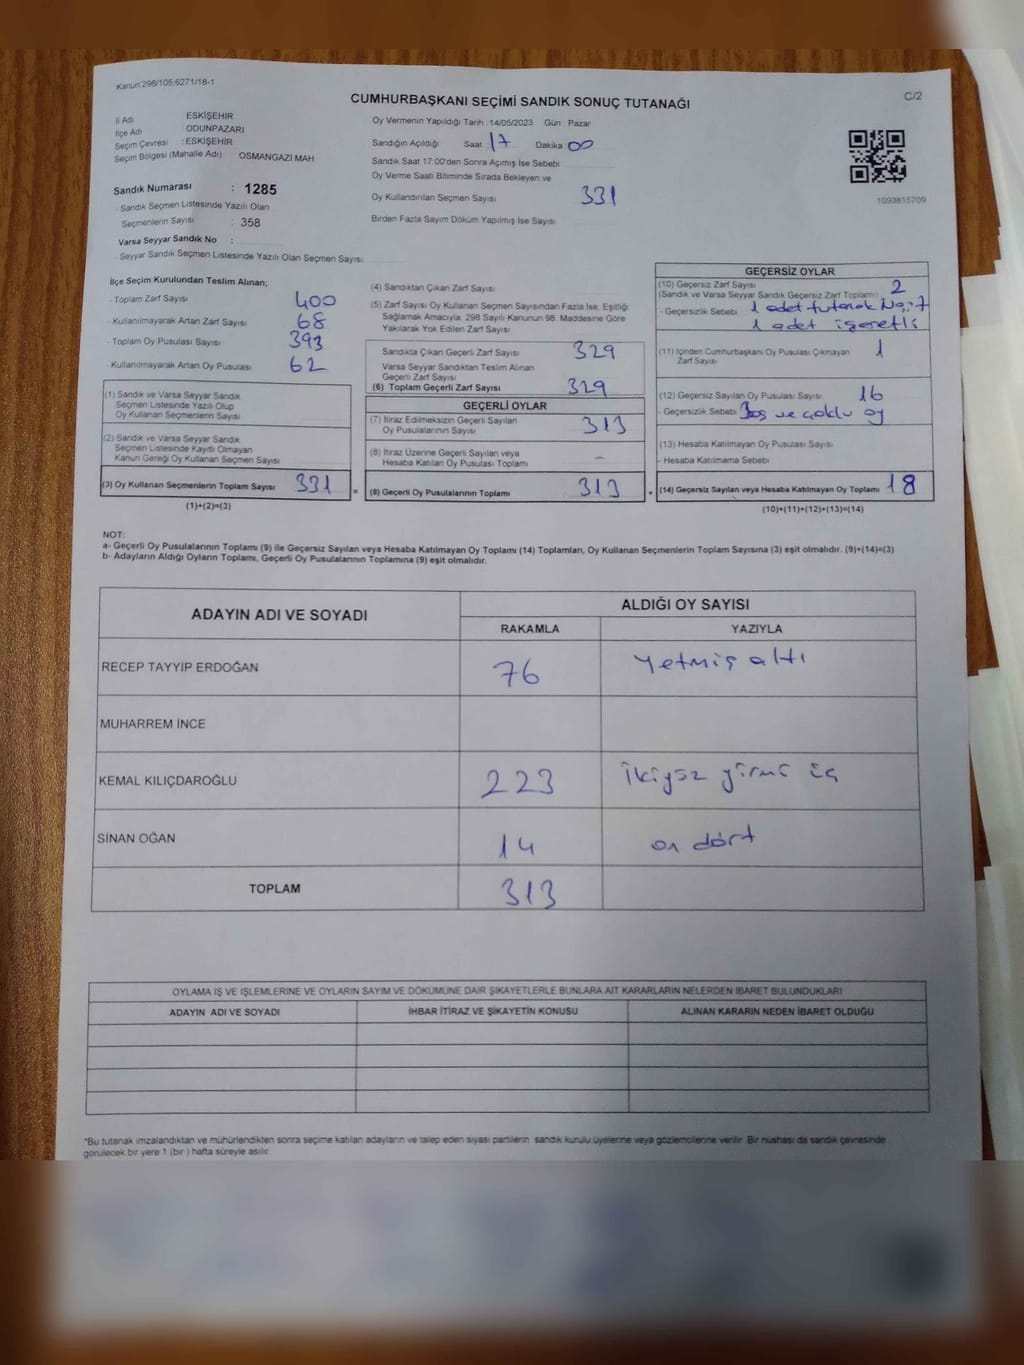 Kanun:298/105;6271/18-1
CUMHURBAŞKANI SEÇİMİ SANDIK SONUÇ TUTANAĞI
C/2
İl Adı ESKİŞEHİR
İlçe Adı ODUNPAZARI
Seçim Çevresi : ESKİŞEHİR
Seçim Bölgesi (Mahalle Adı) OSMANGAZİ MAH
Sandık Numarası : 1285
Sandık Seçmen Listesinde Yazılı Olan
Seçmenlerin Sayısı : 358
Varsa Seyyar Sandık No :
Seyyar Sandık Seçmen Listesinde Yazılı Olan Seçmen Sayısı
Oy Vermenin Yapıldığı Tarih : 14/05/2023 Gün : Pazar
Sandığın Açıldığı Saat 17 Dakika 00
Sandık Saat 17:00'den Sonra Açımış İse Sebebi
Oy Verme Saati Bitiminde Sırada Bekleyen ve
Oy Kullandırılan Seçmen Sayısı 331
Birden Fazla Sayım Döküm Yapılmış İse Sayısı
1093815709
İlçe Seçim Kurulundan Teslim Alınan;
- Toplam Zarf Sayısı 400
- Kullanılmayarak Artan Zarf Sayısı 68
- Toplam Oy Pusulası Sayısı 393
- Kullanılmayarak Artan Oy Pusulası 62
(1) Sandık ve Varsa Seyyar Sandık
Seçmen Listesinde Yazılı Olup
Oy Kullanan Seçmenlerin Sayısı
(2) Sandık ve Varsa Seyyar Sandık
Seçmen Listesinde Kayıtlı Olmayan
Kanun Gereği Oy Kullanan Seçmen Sayısı
(3) Oy Kullanan Seçmenlerin Toplam Sayısı 331
(1)+(2)=(3)
(4) Sandıktan Çıkan Zarf Sayısı
(5) Zarf Sayısı Oy Kullanan Seçmen Sayısından Fazla İse, Eşitliği
Sağlamak Amacıyla, 298 Sayılı Kanunun 98. Maddesine Göre
Yakılarak Yok Edilen Zarf Sayısı
Sandıkta Çıkan Geçerli Zarf Sayısı 329
Varsa Seyyar Sandıktan Teslim Alınan
Geçerli Zarf Sayısı
(6) Toplam Geçerli Zarf Sayısı 329
GEÇERLİ OYLAR
(7) İtiraz Edilmeksizin Geçerli Sayılan
Oy Pusulalarının Sayısı 313
(8) İtiraz Üzerine Geçerli Sayılan veya
Hesaba Katılan Oy Pusulası Toplamı -
= (9) Geçerli Oy Pusulalarının Toplamı 313 +
GEÇERSİZ OYLAR
(10) Geçersiz Zarf Sayısı 2
(Sandık ve Varsa Seyyar Sandık Geçersiz Zarf Toplamı)
- Geçersizlik Sebebi 1 adet tutanak
1 adet işaretli
(11) İçinden Cumhurbaşkanı Oy Pusulası Çıkmayan
Zarf Sayısı 1
(12) Geçersiz Sayılan Oy Pusulası Sayısı 16
- Geçersizlik Sebebi Boş ve çoklu oy
(13) Hesaba Katılmayan Oy Pusulası Sayısı
- Hesaba Katılmama Sebebi
(14) Geçersiz Sayılan veya Hesaba Katılmayan Oy Toplamı 18
(10)+(11)+(12)+(13)=(14)
NOT:
a- Geçerli Oy Pusulalarının Toplamı (9) ile Geçersiz Sayılan veya Hesaba Katılmayan Oy Toplamı (14) Toplamları, Oy Kullanan Seçmenlerin Toplam Sayısına (3) eşit olmalıdır. (9)+(14)=(3)
b- Adayların Aldığı Oyların Toplamı, Geçerli Oy Pusulalarının Toplamına (9) eşit olmalıdır.
ADAYIN ADI VE SOYADI
ALDIĞI OY SAYISI
RAKAMLA YAZIYLA
RECEP TAYYİP ERDOĞAN 76 Yetmiş altı
MUHARREM İNCE
KEMAL KILIÇDAROĞLU 223 İkiyüz yirmi üç
SİNAN OĞAN 14 on dört
TOPLAM 313
OYLAMA İŞ VE İŞLEMLERİNE VE OYLARIN SAYIM VE DÖKÜMÜNE DAİR ŞİKAYETLERLE BUNLARA AİT KARARLARIN NELERDEN İBARET BULUNDUKLARI
ADAYIN ADI VE SOYADI İHBAR İTİRAZ VE ŞİKAYETİN KONUSU ALINAN KARARIN NEDEN İBARET OLDUĞU
*Bu tutanak imzalandıktan ve mühürlendikten sonra seçime katılan adayların ve talep eden siyasi partilerin sandık kurulu üyelerine veya gözlemcilerine verilir. Bir nüshası da sandık çevresinde
görülecek bir yere 1 (bir) hafta süreyle asılır.